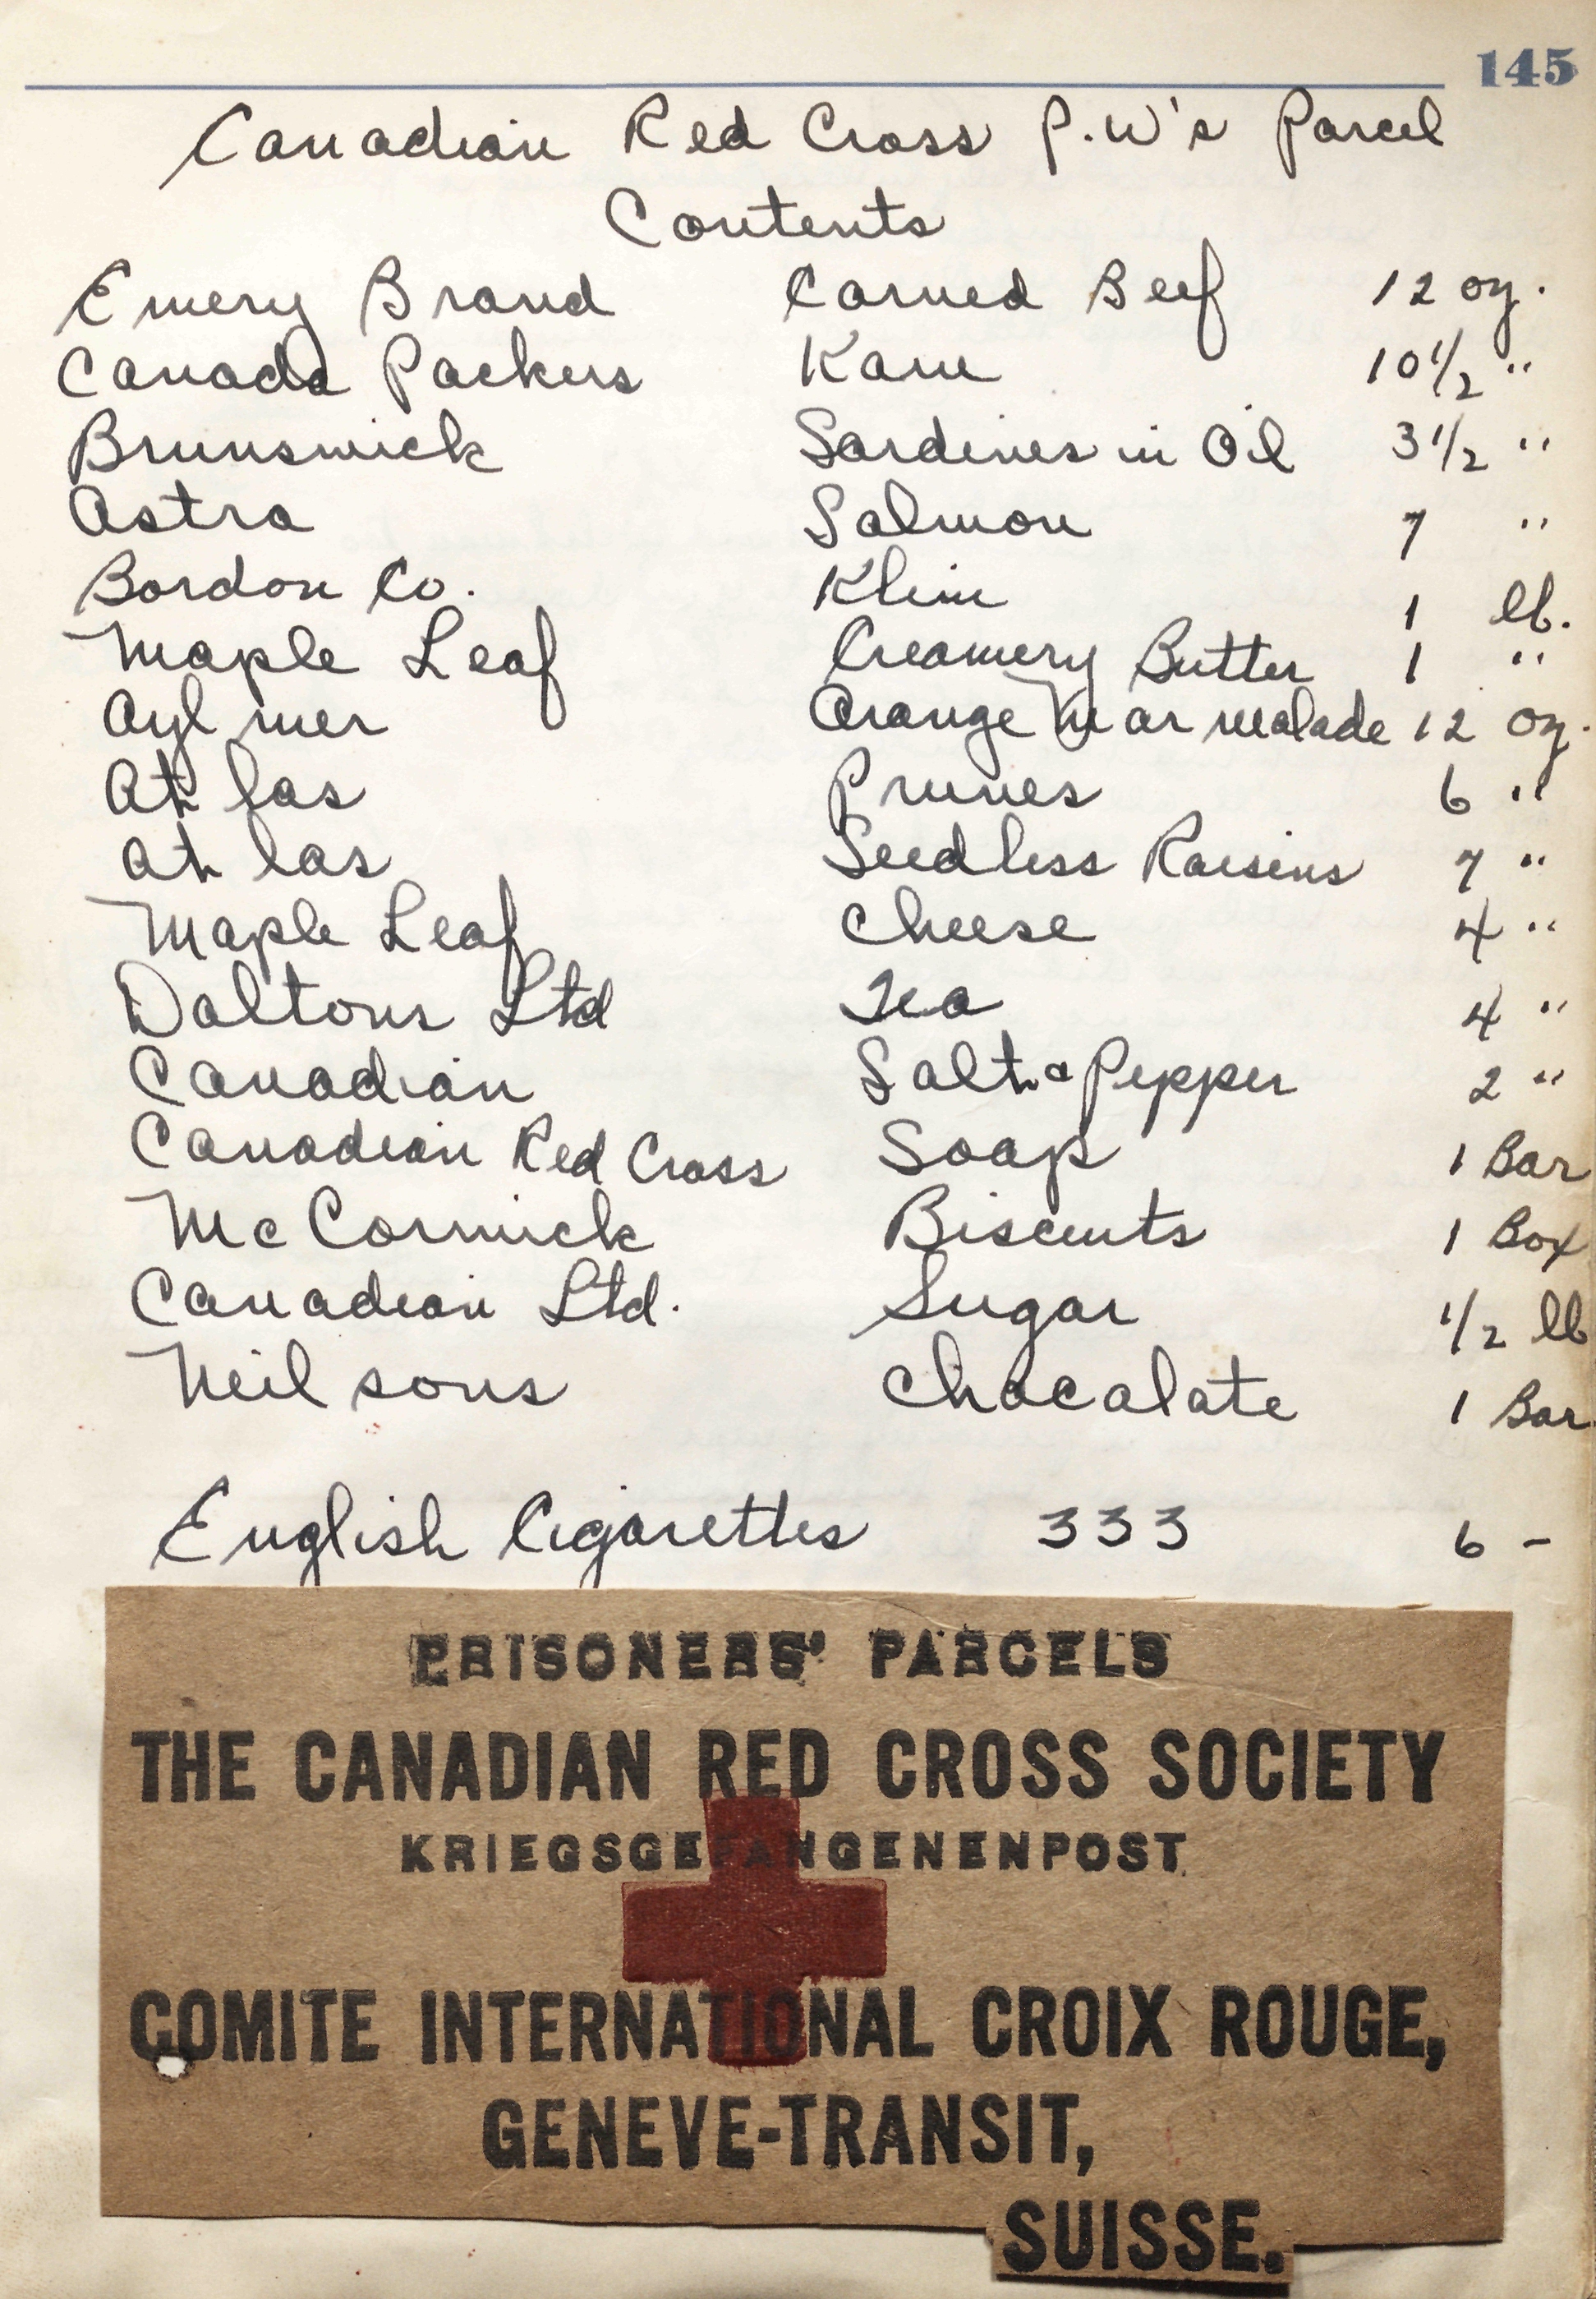 145
Canadian Red Cross P.W's Parcel
Contents
Emery Brand Corned Beef 12 oz.
Canada Packers Kam 10 1/2 "
Brunswick Sardines in Oil 3 1/2 "
Astra Salmon 7 "
Bordon Co. Klim 1 lb.
Maple Leaf Creamery Butter 1 "
Aylmer Orange Marmalade 12 oz.
Atlas Prunes 6 "
Atlas Seedless Raisins 7 "
Maple Leaf Cheese 4 "
Daltons Ltd Tea 4 "
Canadian Salt & Pepper 2 "
Canadian Red Cross Soap 1 Bar
McCormick Biscuits 1 Box
Canadian Ltd. Sugar 1/2 lb
Neilsons Chocalate 1 Bar
English Cigarettes 333 6 -
PRISONERS' PARCELS
THE CANADIAN RED CROSS SOCIETY
KRIEGSGEFANGENENPOST
COMITE INTERNATIONAL CROIX ROUGE,
GENEVE-TRANSIT,
SUISSE.